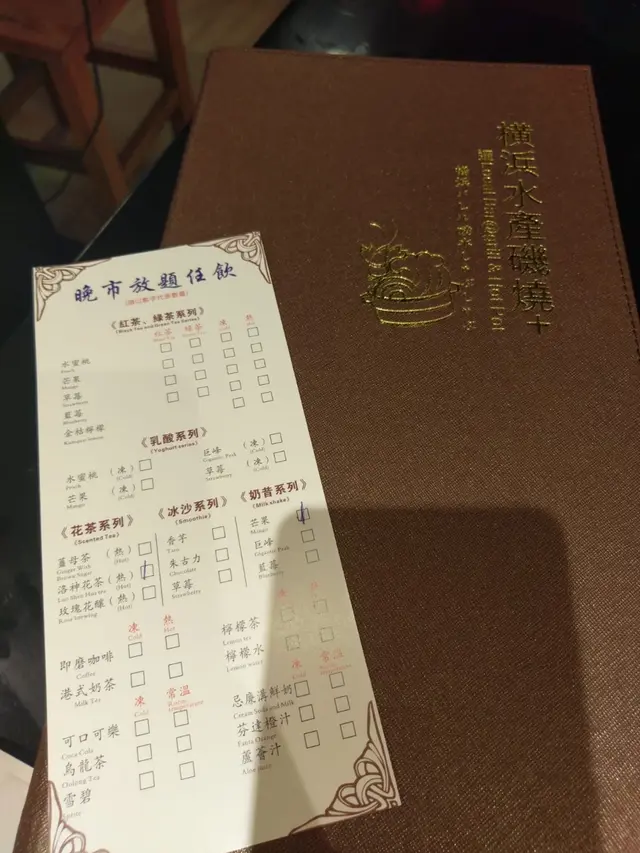 橫浜水產磯燒十
晚市放題任飲
《紅茶、綠茶系列》
(Black Tea and Green Tea Series)
紅茶 綠茶 凍 熱
水蜜桃
Peach
芒果
Mango
草莓
Strawberry
藍莓
Blueberry
金桔檸檬
《乳酸系列》
(Yoghurt series)
水蜜桃 (凍) 巨峰 (凍)
Peach (Cold) (Cold)
芒果 (凍) 草莓 (凍)
Mango (Cold) Strawberry (Cold)
《花茶系列》 《冰沙系列》 《奶昔系列》
(Scented Tea) (Smoothie) (Milk shake)
薑母茶 (熱) 香芋 芒果
Ginger With Brown Sugar (Hot) Taro Mango
洛神花茶 (熱) 朱古力 巨峰
(Hot) Chocolate
玫瑰花釀 (熱) 草莓 藍莓
(Hot) Strawberry Blueberry
凍 熱
Cold Hot
即磨咖啡 檸檬茶
Coffee Lemon tea
港式奶茶 檸檬水
Milk Tea Lemon water
凍 常温 凍 常温
Cold Cold
可口可樂 忌廉溝鮮奶
Coca Cola Cream Soda and Milk
烏龍茶 芬達橙汁
Oolong Tea Fanta Orange
雪碧 蘆薈汁
Sprite Aloe juice